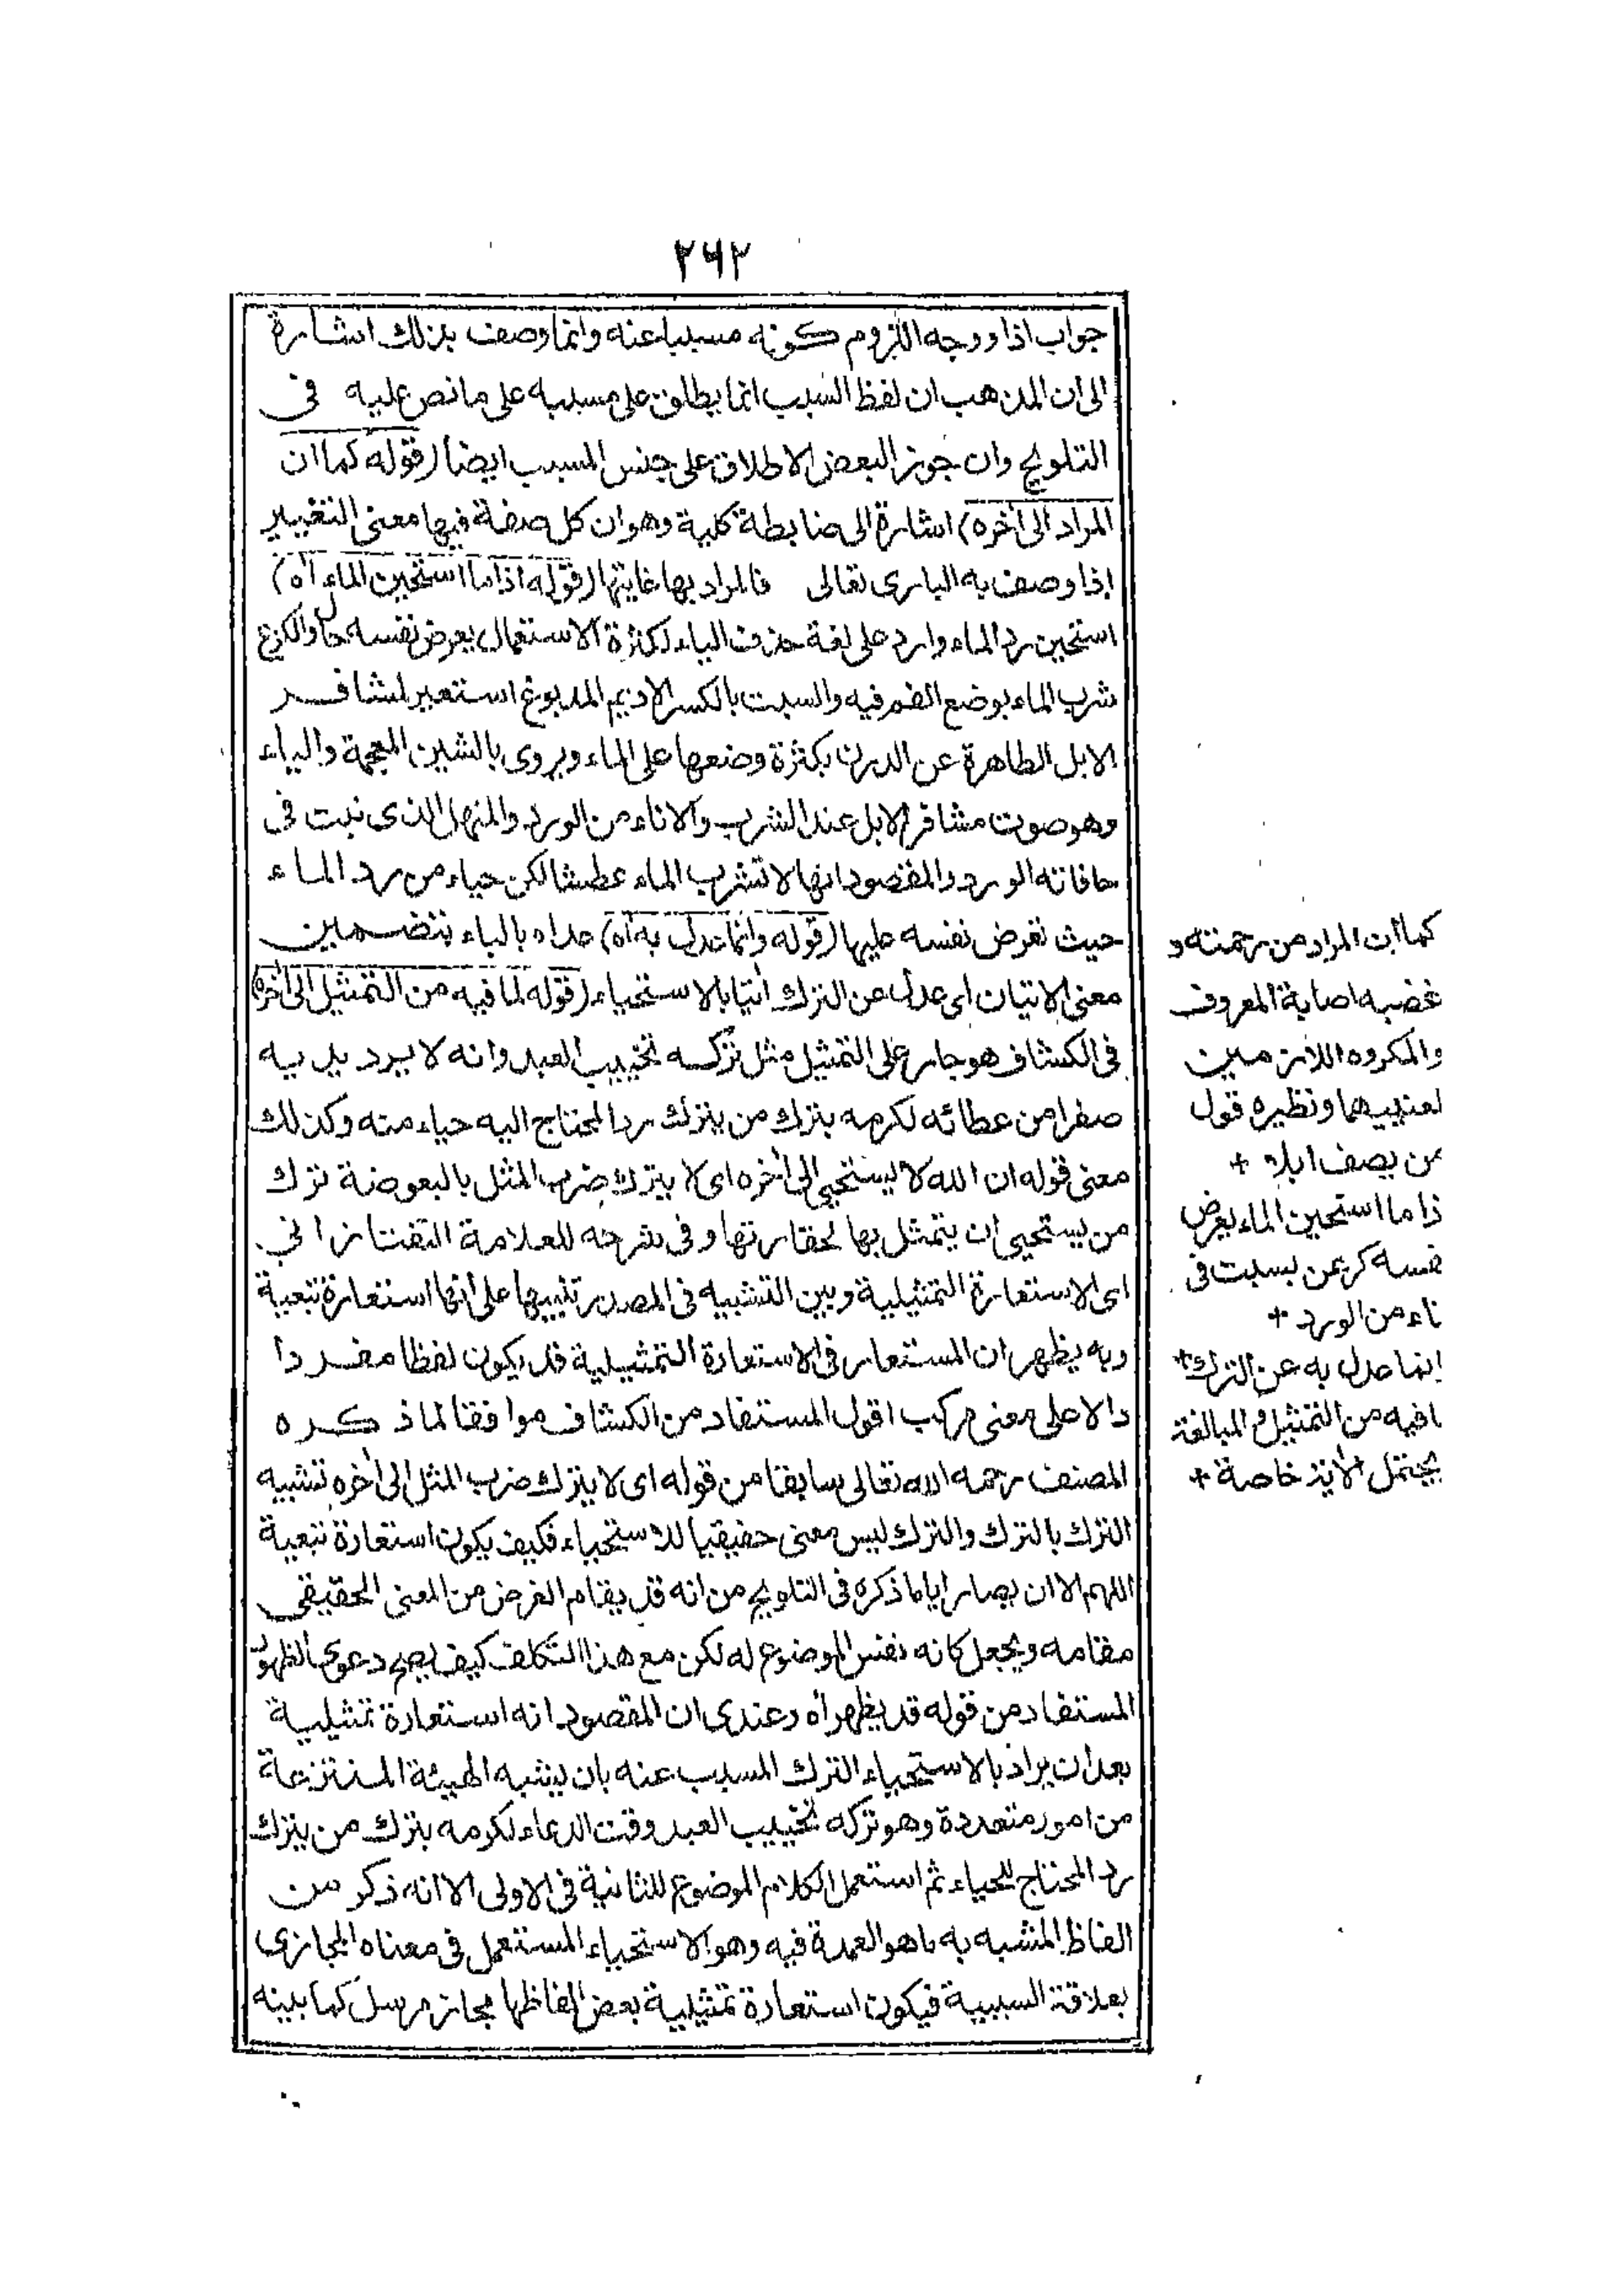 ٢٦٢
جواب اذا ووجه اللزوم كونه مسببا عنه وانما وصف بذلك اشارة
الى ان المذهب ان لفظ السبب انما يطلق على مسببه على ما نص عليه فى
التلويح وان جوز البعض الاطلاق على جنس المسبب ايضا (قوله كما ان
المراد الى اخره) اشارة الى ضابطة كلية وهو ان كل صفة فيها معنى التغيير
اذا وصف به البارى تعالى فالمراد بها غايتها (قوله اذا ما استحين الماء اه)
استحين رد الماء وارد على لغة حذفت الياء لكثرة الاستعمال يعرض نفسه حال والكرع
شرب الماء بوضع الفم فيه والسبت بالكسر الاديم المدبوغ استعير لمشافر
الابل الطاهرة عن الدرن بكثرة وضعها على الماء ويروى بالشين المعجمة والياء
وهو صوت مشافر الابل عند الشرب والاناء من الورد والمنهل الذى نبت فى
حافاته الورد والمقصود انها لا تشرب الماء عطشا لكن حياء من رد الماء
حيث تعرض نفسه عليها (قوله وانما عدل به اه) عداه بالباء بتضمين
معنى الاتيان اى عدل عن الترك اتيا بالاستحياء (قوله لما فيه من التمثيل الى اخره)
فى الكشاف هو جار على التمثيل مثل تركه تخييب العبد وانه لا يرد يديه
صفرا من عطائه لكرمه بترك من يترك رد المحتاج اليه حياء منه وكذلك
معنى قوله ان الله لا يستحيى الى اخره اى لا يترك ضرب المثل بالبعوضة ترك
من يستحيى ان يتمثل بها لحقارتها وفى شرحه للعلامة التفتازانى
اى الاستعارة التمثيلية وبين التشبيه فى المصدر تنبيها على انها استعارة تبعية
وبه يظهر ان المستعار فى الاستعارة التمثيلية قد يكون لفظا مفردا
دالا على معنى مركب اقول المستفاد من الكشاف موافقا لما ذكره
المصنف رحمه الله تعالى سابقا من قوله اى لا يترك ضرب المثل الى اخره تشبيه
الترك بالترك والترك ليس معنى حقيقيا للاستحياء فكيف يكون استعارة تبعية
اللهم الا ان يصار الى ما ذكره فى التلويح من انه قد يقام الغرض من المعنى الحقيقى
مقامه ويجعل كانه نفس الموضوع له لكن مع هذا التكلف كيف يصح دعوى الظهور
المستفاد من قوله قد يظهر اه وعندى ان المقصود انه استعارة تمثيلية
بعد ان يراد بالاستحياء الترك المسبب عنه بان يشبه الهيئة المنتزعة
من امور متعددة وهو تركه تخييب العبد وقت الدعاء لكرمه بترك من يترك
رد المحتاج للحياء ثم استعمل الكلام الموضوع للثانية فى الاولى الا انه ذكر من
الفاظ المشبه به ما هو العمدة فيه وهو الاستحياء المستعمل فى معناه المجازى
بعلاقة السببية فيكون استعارة تمثيلية بعض الفاظها مجاز مرسل كما بينه
كما ان المراد من رحمته و
غضبه اصابة المعروف
والمكروه اللازمين
لمعنييهما ونظيره قول
من يصف ابلا +
ذا ما استحين الماء يعرض
نفسه كرعن بسبت فى
ناء من الورد +
انما عدل به عن الترك +
ما فيه من التمثيل والمبالغة
يحتمل الاية خاصة +